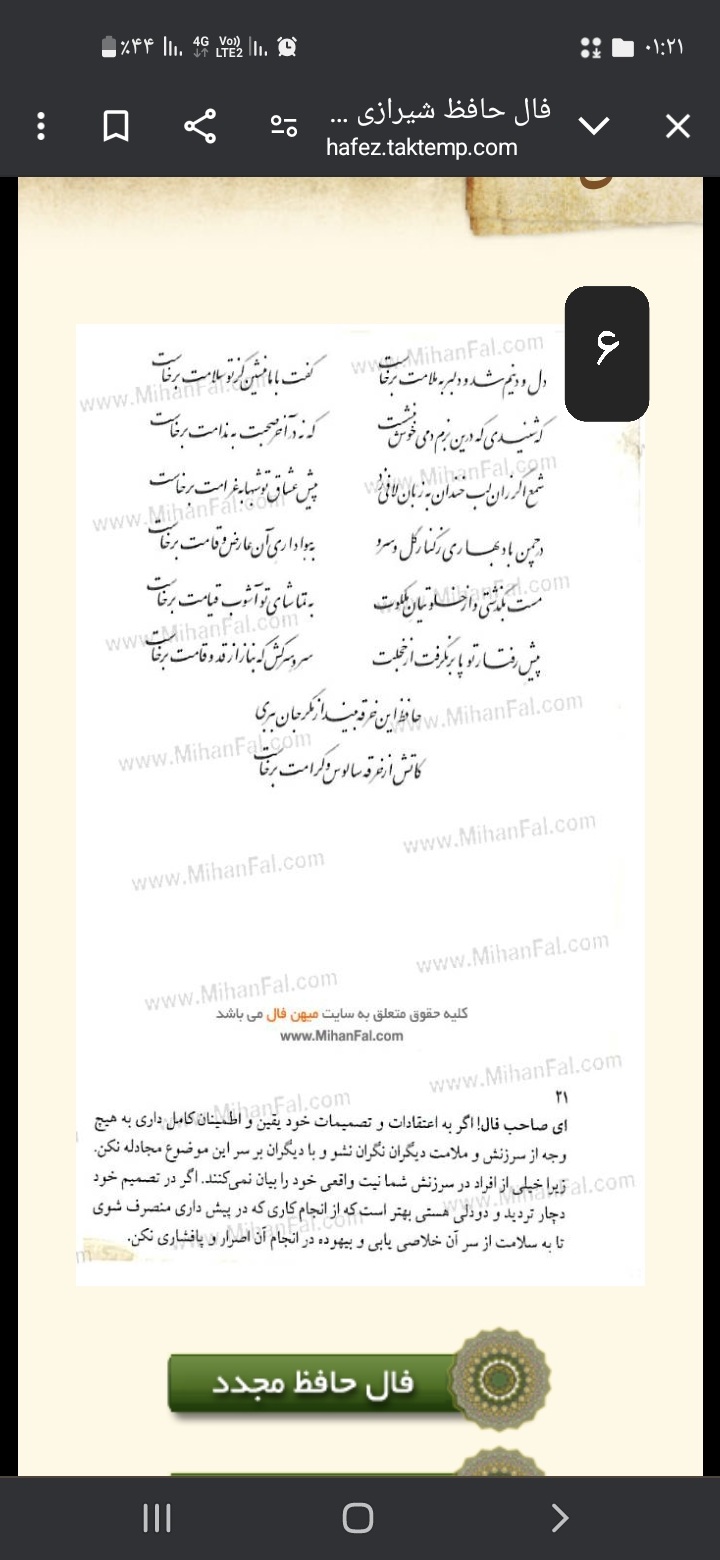 ٪۴۴ 4G Vo)) LTE2 ۰۱:۲۱
فال حافظ شیرازی ...
hafez.taktemp.com
۶
دل و دینم شد و دلبر به ملامت برخاست گفت با ما منشین کز تو سلامت برخاست
که شنیدی که درین بزم دمی خوش بنشست که نه در آخر صحبت به ندامت برخاست
شمع اگر زان لب خندان به زبان لافی زد پیش عشاق تو شبها به غرامت برخاست
در چمن باد بهاری ز کنار گل و سرو به هواداری آن عارض و قامت برخاست
مست بگذشتی و از خلوتیان ملکوت به تماشای تو آشوب قیامت برخاست
پیش رفتار تو پا برنگرفت از خجلت سرو سرکش که به ناز از قد و قامت برخاست
حافظ این خرقه بینداز مگر جان ببری
کاتش از خرقه سالوس و کرامت برخاست
www.MihanFal.com
کلیه حقوق متعلق به سایت میهن فال می باشد
www.MihanFal.com
۲۱
ای صاحب فال! اگر به اعتقادات و تصمیمات خود یقین و اطمینان کامل داری به هیچ
وجه از سرزنش و ملامت دیگران نگران نشو و با دیگران بر سر این موضوع مجادله نکن.
زیرا خیلی از افراد در سرزنش شما نیت واقعی خود را بیان نمی‌کنند. اگر در تصمیم خود
دچار تردید و دودلی هستی بهتر است که از انجام کاری که در پیش داری منصرف شوی
تا به سلامت از سر آن خلاصی یابی و بیهوده در انجام آن اصرار و پافشاری نکن.
فال حافظ مجدد